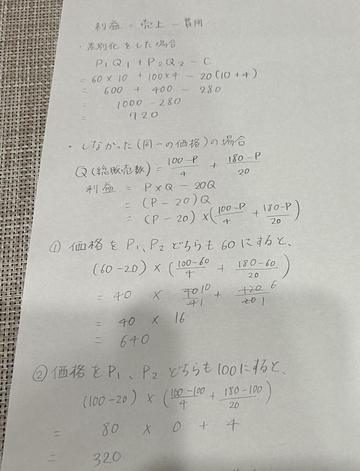 利益 = 売上 - 費用
・差別化をした場合
P1Q1 + P2Q2 - C
= 60 × 10 + 100×4 - 20(10+4)
= 600 + 400 - 280
= 1000 - 280
= 720
・しなかった(同一の価格)の場合
Q(総販売数) = 100-P/4 + 180-P/20
利益 = P×Q - 20Q
= (P-20)Q
= (P-20) × (100-P/4 + 180-P/20)
① 価格をP1、P2どちらも60にすると、
(60-20) × (100-60/4 + 180-60/20)
= 40 × 40 10/4 1 + 120 6/20 1
= 40 × 16
= 640
② 価格をP1、P2どちらも100にすると、
(100-20) × (100-100/4 + 180-100/20)
= 80 × 0 + 4
= 320